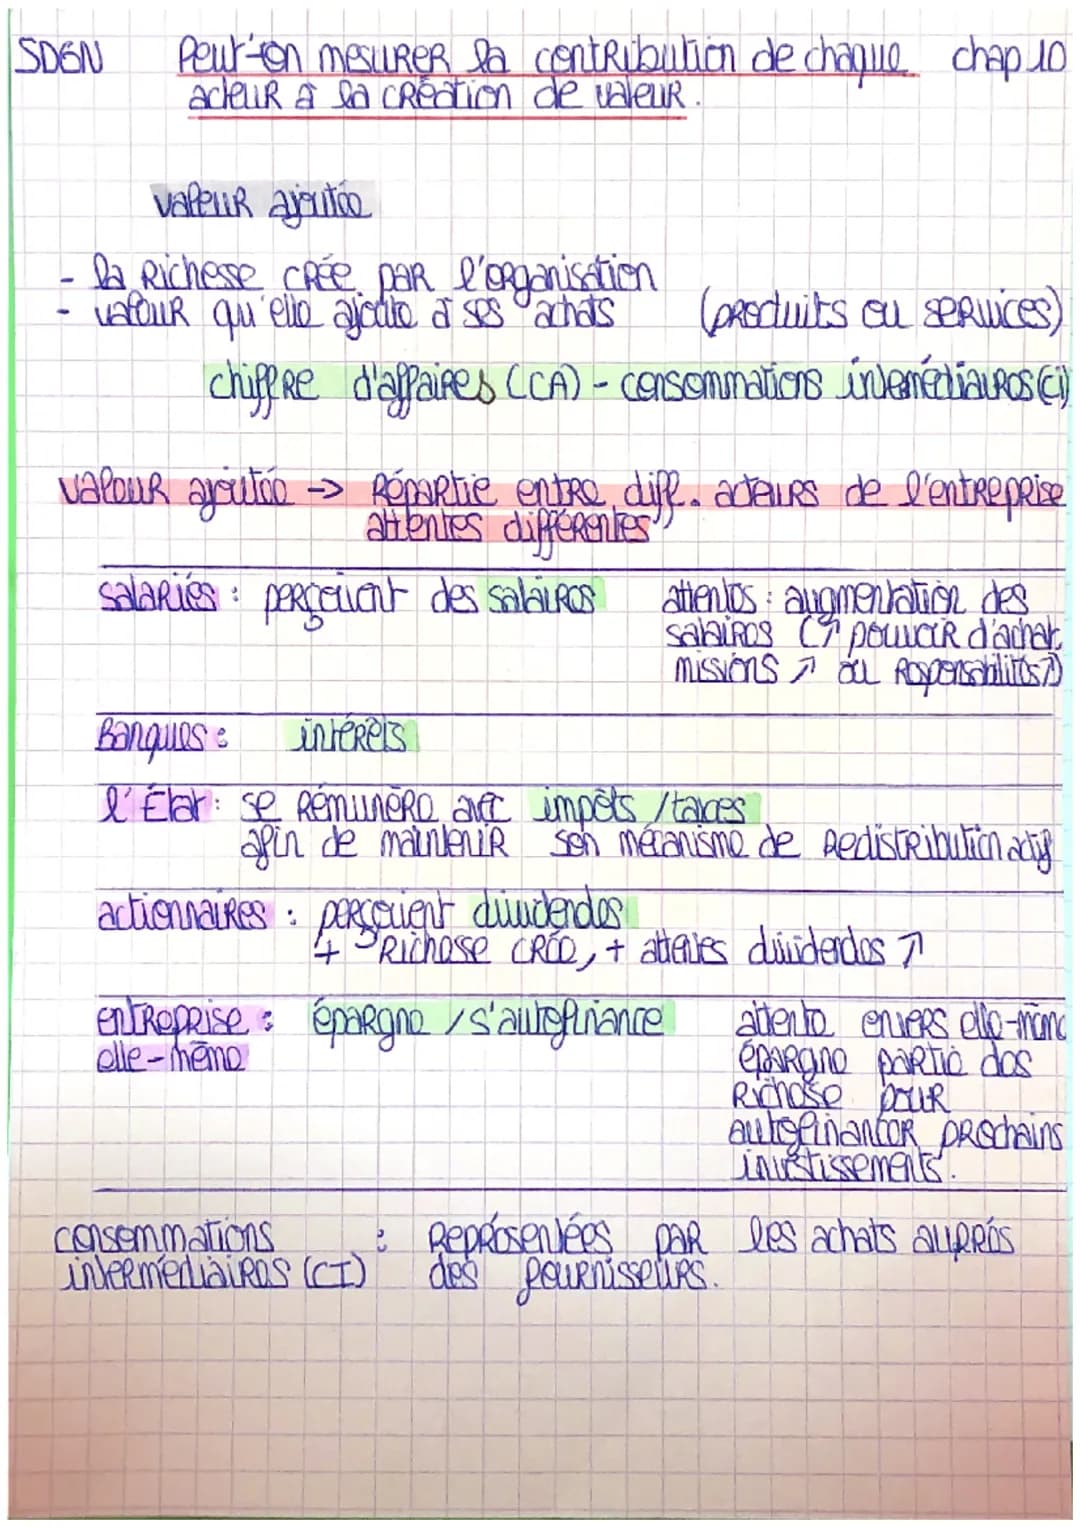 SDGN Peut-on mesurer la contribution de chaque chap 10
acteur à la création de valeur.
valeur ajoutée
- la richesse crée par l'organisation
- valeur qu'elle ajoute à ses achats (produits ou services)
chiffre d'affaires (CA) - consommations intermédiaires (ci)
valeur ajoutée -> Répartie entre diff. acteurs de l'entreprise
attentes différentes
salariés : perçoivent des salaires attentes : augmentation des
salaires (↗ pouvoir d'achat,
missions ↗ ou responsabilités ↗)
Banques : intérêts
l'État : se rémunère avec impôts / taxes
afin de maintenir son mécanisme de redistribution actif
actionnaires : perçoivent dividendes
+ richesse créé, + attentes dividendes ↗
entreprise : épargne / s'autofinance attente envers elle-même
elle-même épargne partie des
richesse pour
autofinancer prochains
investissements.
consommations : Représentées par les achats auprès
intermédiaires (CI) des fournisseurs.